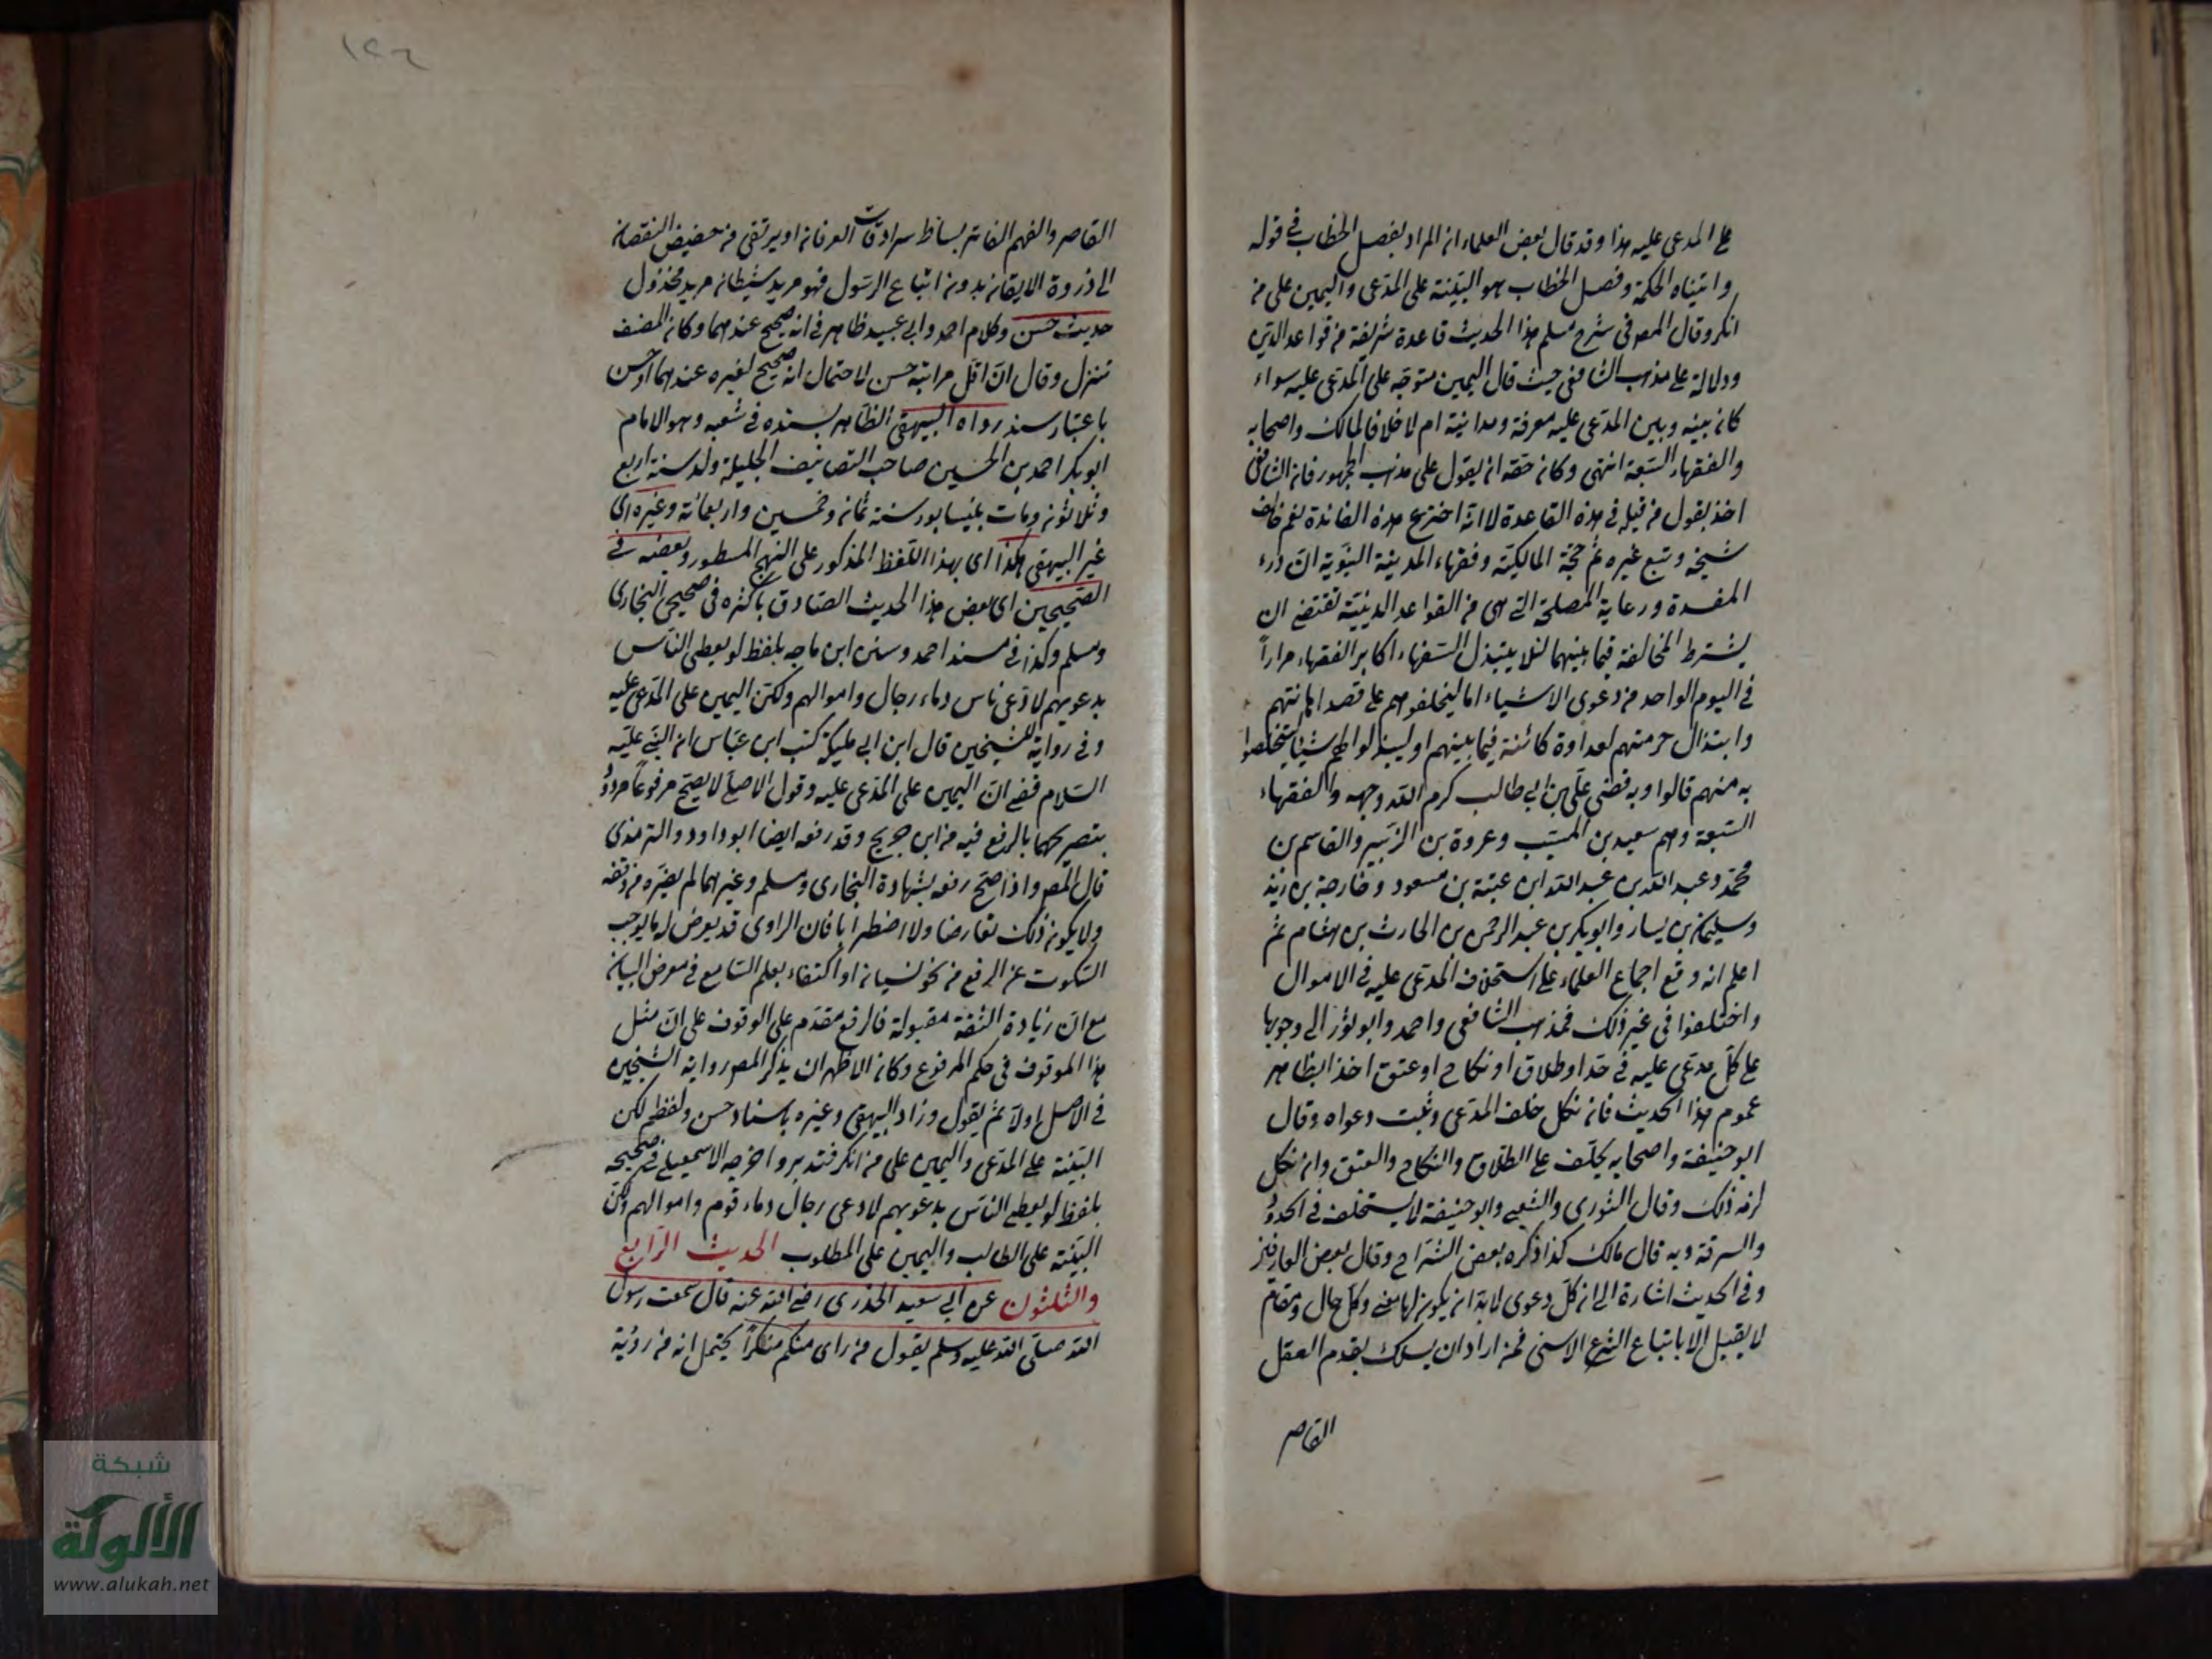 على المدعى عليه هذا وقد قال بعض العلماء ان المراد بفصل الخطاب في قوله
واتيناه الحكمة وفصل الخطاب هو البيّنة على المدّعى واليمين على من
انكر وقال المص في شرح مسلم هذا الحديث قاعدة شريفة من قواعد الدّين
ودلالة على مذهب الشافعى حيث قال اليمين متوجّه على المدّعى عليه سواء
كان بينه وبين المدّعى عليه معرفة ومداينة ام لا خلافا لمالك واصحابه
والفقهاء السّبعة انتهى وكان حقه ان يقول على مذهب الجمهور فان الشافعى
اخذ بقول من قبله في هذه القاعدة لا انّه اخترع هذه الفائدة نعم خالف
شيخه وتبع غيره ثم حجّة المالكيّة وفقهاء المدينة النبويّة انّ درء
المفسدة ورعاية المصلحة التى هى من القواعد الدينيّة تقتضى ان
يشترط المخالفة فيما بينهما لئلا يبتذل السّفهاء اكابر الفقهاء مراراً
في اليوم الواحد من دعوى الاشياء اما ليحلفوهم على قصد اهانتهم
وابتذال حرمتهم لعداوة كائنة فيما بينهم او ليبذلوا لهم شيئا يتخلّصوا
به منهم قالوا وبه قضى علّى بن ابى طالب كرم الله وجهه والفقهاء
السّبعة وهم سعيد بن المسيّب وعروة بن الزّبير والقاسم بن
محمّد وعبد الله بن عبد الله ابن عتبة بن مسعود وخارجة بن زيد
وسليمان بن يسار وابو بكر بن عبد الرحمن بن الحارث بن هشام ثم
اعلم انه وقع اجماع العلماء على استحلاف المدّعى عليه في الاموال
واختلفوا في غير ذلك فمذهب الشافعى واحمد وابو ثور الى وجوبها
على كلّ مدعى عليه في حدّ او طلاق او نكاح او عتق اخذا بظاهر
عموم هذا الحديث فان نكل حلف المدّعى وثبت دعواه وقال
ابو حنيفة واصحابه يحلّف على الطلاق والنكاح والعتق وان نكل
لزمه ذلك وقال الثورى والشعبى وابو حنيفة لا يستحلف في الحدود
والسرقة وبه قال مالك كذا ذكره بعض الشرّاح وقال بعض العارفين
وفي الحديث اشارة الى ان كلّ دعوى لا بدّ ان يكون لها معنى وكلّ حال ومقام
لا يقبل الا باتباع الشرع الاسنى فمن اراد ان يسلك بقدم العقل
القاصر
١٤٦
القاصر والفهم الفاتر بساط سرادقات العرفان او يرتقى من حضيض النقصان
الى ذروة الايقان بدون اتباع الرسول فهو مريد شيطان مريد مخذول
حديث حسن وكلام احمد وابى عبيد ظاهر في انه صحيح عندهما وكان المصنف
تنزل وقال انّ اقلّ مراتبه حسن لاحتمال انه صحيح لغيره عندهما او حسن
باعتبار سند رواه البيهقى الظاهر بسنده في شعبه وهو الامام
ابو بكر احمد بن الحسين صاحب التصانيف الجليلة ولد سنة اربع
وثلاثون ومات بنيسابور سنة ثمان وخمسين واربعمائة وغيره اى
غير البيهقى هكذا اى بهذا اللفظ المذكور على النهج المسطور وبعضه في
الصّحيحين اى بعض هذا الحديث الصّادق باكثره في صحيحى البخارى
ومسلم وكذا في مسند احمد وسنن ابن ماجه بلفظ لو يعطى الناس
بدعويهم لادّعى ناس دماء رجال واموالهم ولكنّ اليمين على المدّعى عليه
وفي رواية للشيخين قال ابن ابى مليكة كتب ابن عبّاس ان النبى عليه
السلام قضى انّ اليمين على المدّعى عليه وقول الاصيلى لا يصحّ مرفوعاً مردودٌ
بتصريحهما بالرفع فيه من ابن جريج وقد رفعه ايضا ابو داود والترمذى
قال المص واذا صحّ رفعه بشهادة البخارى ومسلم وغيرهما لم يضرّه من وقفه
ولا يكون ذلك تعارضا ولا اضطرابا فان الراوى قد يعرض له ما يوجب
السّكوت عن الرفع من نحو نسيان او اكتفاء بعلم السّامع في معرض البيان
مع انّ زيادة الثقة مقبولة فالرفع مقدّم على الوقوف على انّ مثل
هذا الموقوف في حكم المرفوع وكان الاظهر ان يذكر المص رواية الشيخين
في الاصل اولاً ثم يقول وزاد البيهقى وغيره باسناد حسن ولفظه لكن
البيّنة على المدّعى واليمين على من انكر فتدبر واخرجه الاسمعيلى في صحيحه
بلفظ لو يعطى الناس بدعويهم لادعى رجال دماء قوم واموالهم ولكن
البيّنة على الطالب واليمين على المطلوب الحديث الرّابع
والثلثون عن ابى سعيد الخدرى رضى الله عنه قال سمعت رسول
الله صلّى الله عليه وسلم يقول من راى منكم منكراً يحتمل انه من رؤية
شبكة
الألوكة
www.alukah.net